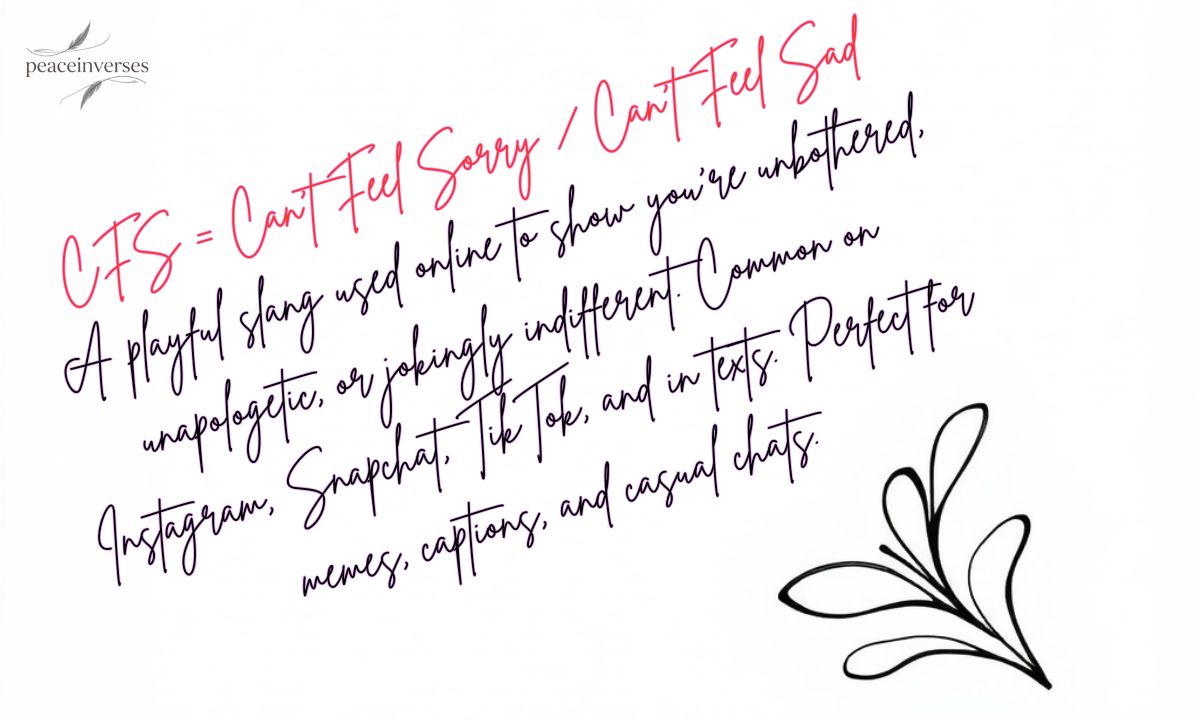 peaceinverses
CFS = Can't Feel Sorry / Can't Feel Sad
A playful slang used online to show you're unbothered,
unapologetic, or jokingly indifferent. Common on
Instagram, Snapchat, TikTok, and in texts. Perfect for
memes, captions, and casual chats.